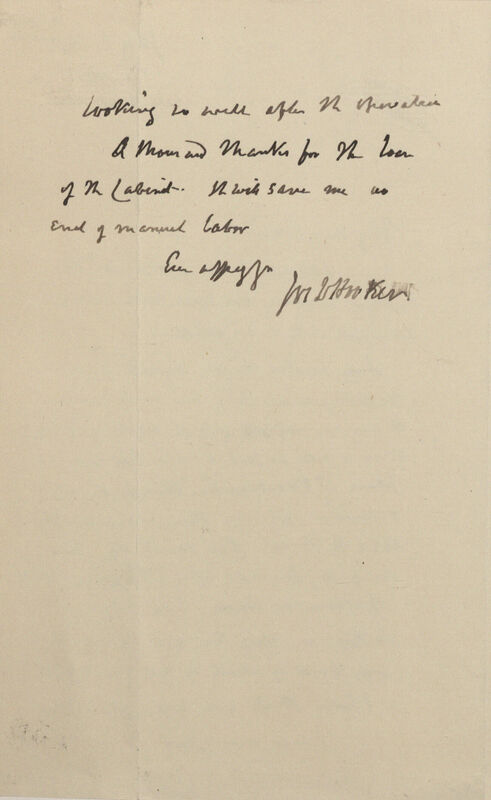 looking so well after the operation
A thousand thanks for the loan
of the Cabinet. It will save me no
end of manual labor
Ever affecy yrs
Jos D Hooker